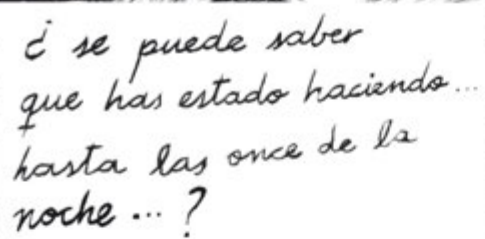 ¿ se puede saber
que has estado haciendo...
hasta las once de la
noche ... ?